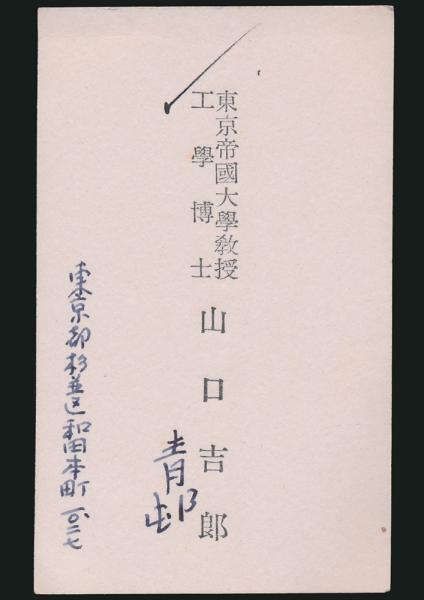 東京帝國大學教授
工學博士
山口吉郎
青邨
東京都杉並区和田本町一〇二七